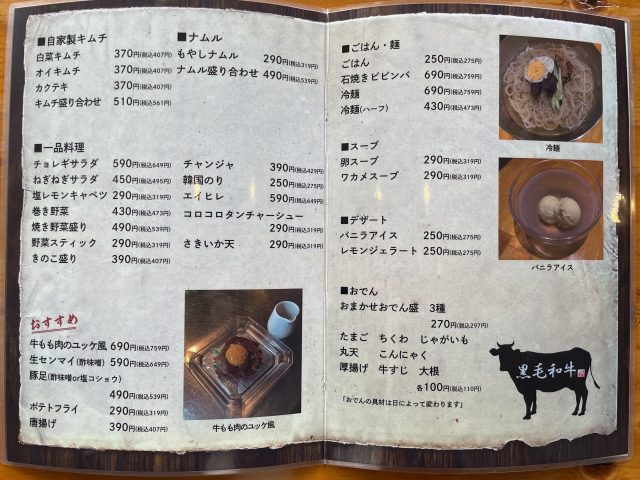 ■自家製キムチ
白菜キムチ 370円(税込407円)
オイキムチ 370円(税込407円)
カクテキ 370円(税込407円)
キムチ盛り合わせ 510円(税込561円)
■ナムル
もやしナムル 290円(税込319円)
ナムル盛り合せ 490円(税込539円)
■一品料理
チョレギサラダ 590円(税込649円)
ねぎねぎサラダ 450円(税込495円)
塩レモンキャベツ 290円(税込319円)
巻き野菜 430円(税込473円)
焼き野菜盛り 490円(税込539円)
野菜スティック 290円(税込319円)
きのこ盛り 390円(税込407円)
チャンジャ 390円(税込429円)
韓国のり 250円(税込275円)
エイヒレ 590円(税込649円)
コロコロタンチャーシュー
290円(税込319円)
さきいか天 290円(税込319円)
おすすめ
牛もも肉のユッケ風 690円(税込759円)
生センマイ(酢味噌) 590円(税込649円)
豚足(酢味噌or塩コショウ)
490円(税込539円)
ポテトフライ 290円(税込319円)
唐揚げ 390円(税込407円)
牛もも肉のユッケ風
■ごはん・麺
ごはん 250円(税込275円)
石焼きビビンバ 690円(税込759円)
冷麺 690円(税込759円)
冷麺(ハーフ) 430円(税込473円)
冷麺
■スープ
卵スープ 290円(税込319円)
ワカメスープ 290円(税込319円)
■デザート
バニラアイス 250円(税込275円)
レモンジェラート 250円(税込275円)
バニラアイス
■おでん
おまかせおでん盛 3種
270円(税込297円)
たまご ちくわ じゃがいも
丸天 こんにゃく
厚揚げ 牛すじ 大根
各100円(税込110円)
「おでんの具材は日によって変わります」
黒毛和牛